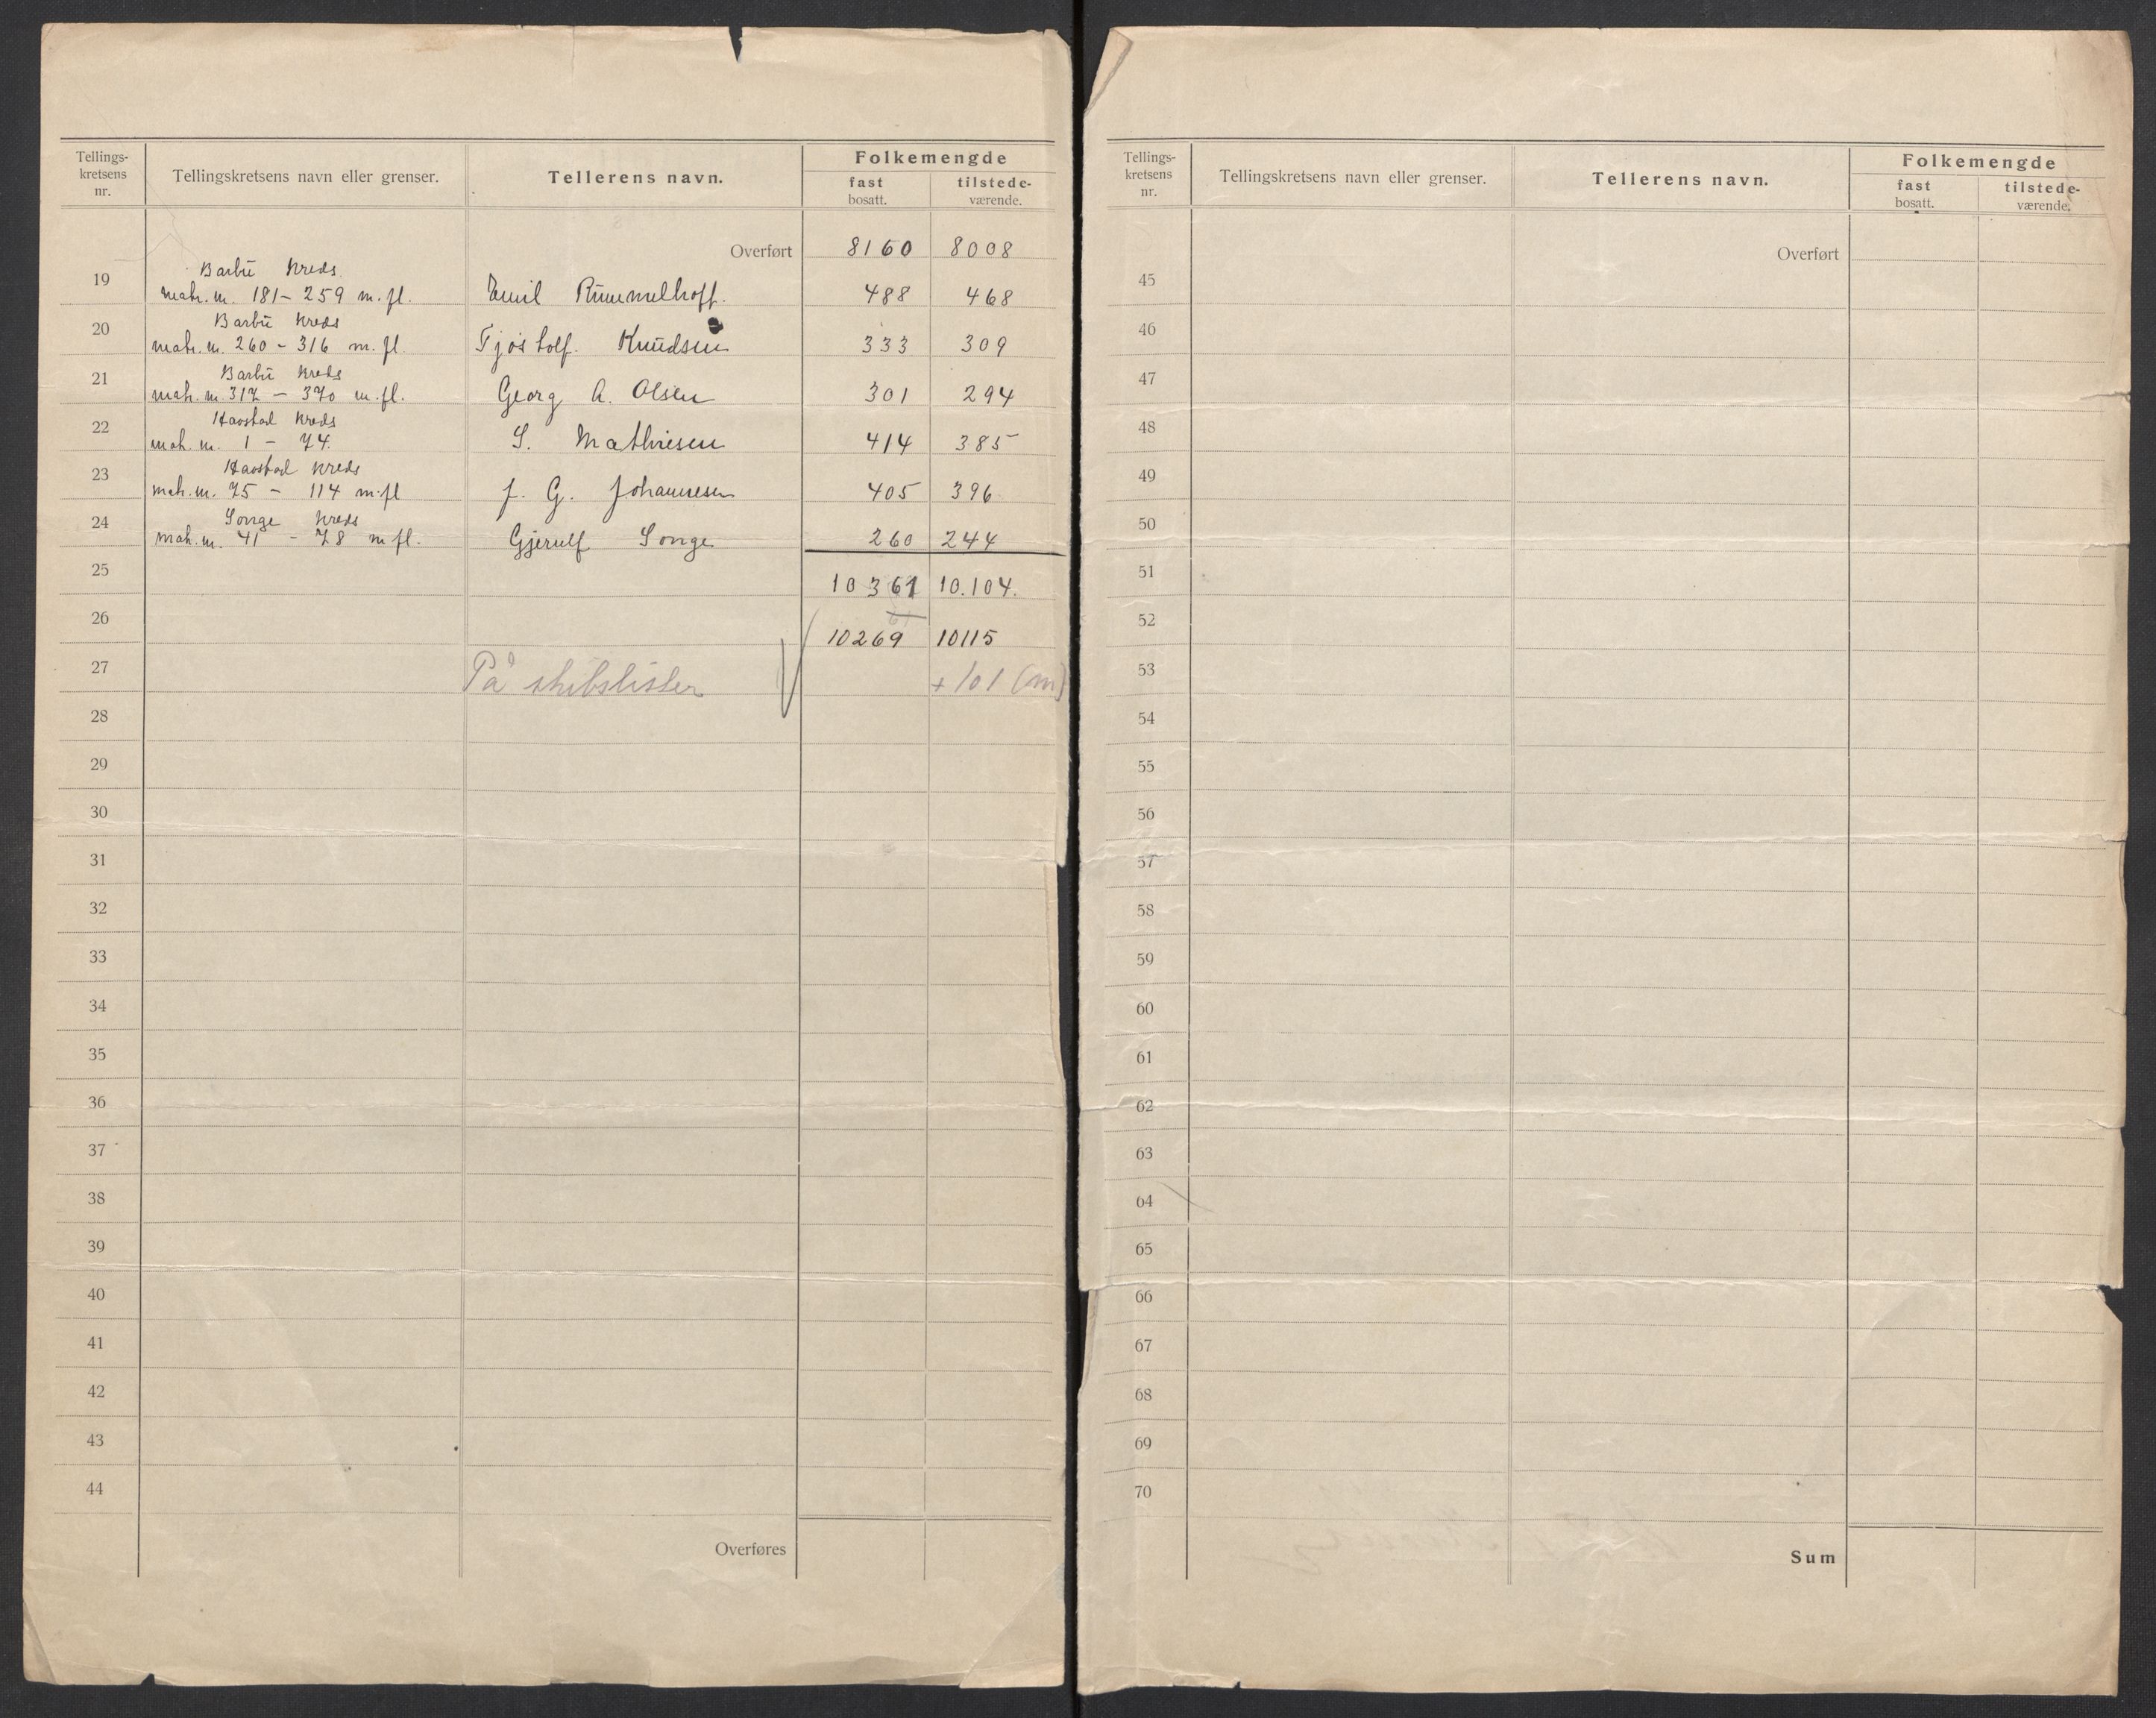 Tellings-
kretsens
nr.
Tellingskretsens navn eller grenser.
Tellerens navn.
Folkemengde
fast
bosatt.
tilstede-
værende.
Overført 8160 8008
Barbu Kreds
19 matr. nr. 181 - 259 m. fl. Emil Rummelhoff. 488 468
Barbu Kreds
20 matr. nr. 260 - 316 m. fl. Tjostolf. Knudsen 333 309
Barbu Kreds
21 matr. nr. 317 - 370 m. fl. Georg A. Olsen 301 294
Havstad Kreds
22 matr. nr. 1 - 74. S. Mathiesen 414 385
Havstad Kreds
23 matr. nr. 75 - 114 m. fl J. G. Johannesen 405 396
Songe Kreds
24 matr. nr. 41 - 78 m fl. Gjerulf Songe 260 244
25 10361 10.104.
26 10269 10115
27 På skibslister +101 (m)
28
29
30
31
32
33
34
35
36
37
38
39
40
41
42
43
44
Overføres
Tellings-
kretsens
nr.
Tellingskretsens navn eller grenser.
Tellerens navn.
Folkemengde
fast
bosatt.
tilstede-
værende.
Overført
45
46
47
48
49
50
51
52
53
54
55
56
57
58
59
60
61
62
63
64
65
66
67
68
69
70
Sum